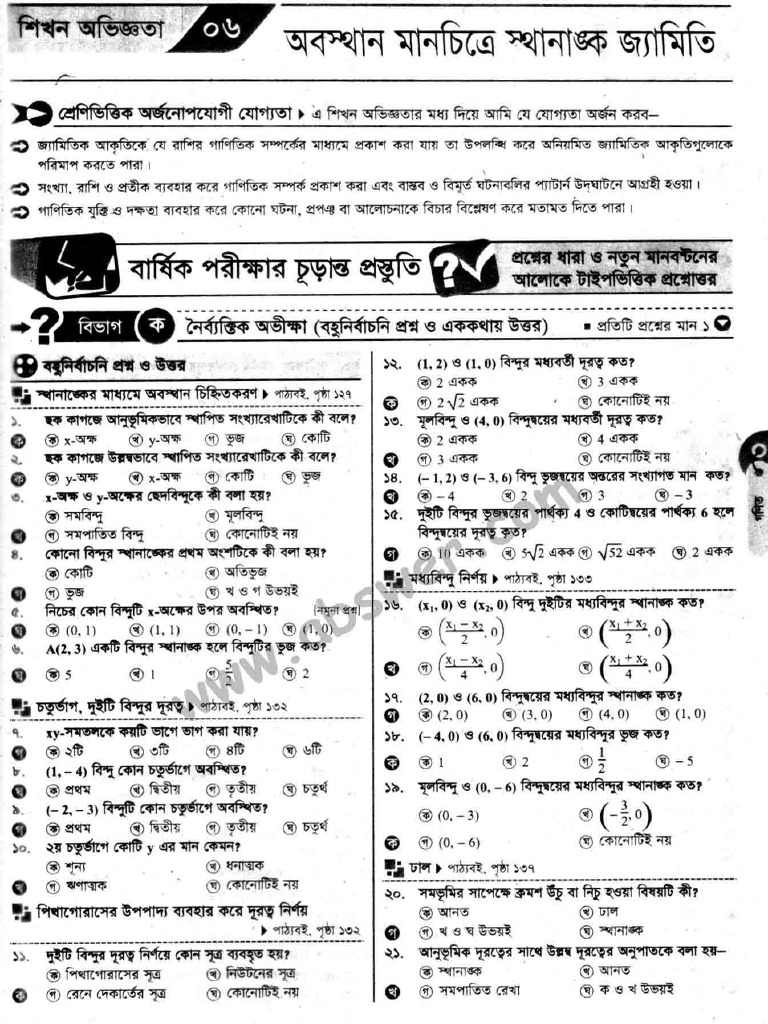 শিখন অভিজ্ঞতা ০৬
অবস্থান মানচিত্রে স্থানাঙ্ক জ্যামিতি
শ্রেণিভিত্তিক অর্জনোপযোগী যোগ্যতা ▸ এ শিখন অভিজ্ঞতার মধ্য দিয়ে আমি যে যোগ্যতা অর্জন করব—
জ্যামিতিক আকৃতিকে যে রাশির গাণিতিক সম্পর্কের মাধ্যমে প্রকাশ করা যায় তা উপলব্ধি করে অনিয়মিত জ্যামিতিক আকৃতিগুলোকে
পরিমাপ করতে পারা।
সংখ্যা, রাশি ও প্রতীক ব্যবহার করে গাণিতিক সম্পর্ক প্রকাশ করা এবং বাস্তব ও বিমূর্ত ঘটনাবলির প্যাটার্ন উদ্‌ঘাটনে আগ্রহী হওয়া।
গাণিতিক যুক্তি ও দক্ষতা ব্যবহার করে কোনো ঘটনা, প্রপঞ্চ বা আলোচনাকে বিচার বিশ্লেষণ করে মতামত দিতে পারা।
বার্ষিক পরীক্ষার চূড়ান্ত প্রস্তুতি
প্রশ্নের ধারা ও নতুন মানবণ্টনের
আলোকে টাইপভিত্তিক প্রশ্নোত্তর
বিভাগ ক নৈর্ব্যক্তিক অভীক্ষা (বহুনির্বাচনি প্রশ্ন ও এককথায় উত্তর) ▪ প্রতিটি প্রশ্নের মান ১
বহুনির্বাচনি প্রশ্ন ও উত্তর
স্থানাঙ্কের মাধ্যমে অবস্থান চিহ্নিতকরণ ▸ পাঠ্যবই, পৃষ্ঠা ১২৭
১. ছক কাগজে আনুভূমিকভাবে স্থাপিত সংখ্যারেখাটিকে কী বলে?
ক ক x-অক্ষ খ y-অক্ষ গ ভুজ ঘ কোটি
২. ছক কাগজে উল্লম্বভাবে স্থাপিত সংখ্যারেখাটিকে কী বলে?
ক ক y-অক্ষ খ x-অক্ষ গ কোটি ঘ ভুজ
৩. x-অক্ষ ও y-অক্ষের ছেদবিন্দুকে কী বলা হয়?
ক সমবিন্দু খ মূলবিন্দু
খ গ সমপাতিত বিন্দু ঘ কোনোটিই নয়
৪. কোনো বিন্দুর স্থানাঙ্কের প্রথম অংশটিকে কী বলা হয়?
ক কোটি খ অতিভুজ
গ ভুজ ঘ খ ও গ উভয়ই
৫. নিচের কোন বিন্দুটি x-অক্ষের উপর অবস্থিত? [নমুনা প্রশ্ন]
ঘ ক (0, 1) খ (1, 1) গ (0, − 1) ঘ (1, 0)
৬. A(2, 3) একটি বিন্দুর স্থানাঙ্ক হলে বিন্দুটির ভুজ কত?
ঘ ক 5 খ 1 গ 5/2 ঘ 2
চতুর্ভাগ, দুইটি বিন্দুর দূরত্ব ▸ পাঠ্যবই, পৃষ্ঠা ১৩২
৭. xy-সমতলকে কয়টি ভাগে ভাগ করা যায়?
গ ক ২টি খ ৩টি গ ৪টি ঘ ৬টি
৮. (1, − 4) বিন্দু কোন চতুর্ভাগে অবস্থিত?
ঘ ক প্রথম খ দ্বিতীয় গ তৃতীয় ঘ চতুর্থ
৯. (− 2, − 3) বিন্দুটি কোন চতুর্ভাগে অবস্থিত?
গ ক প্রথম খ দ্বিতীয় গ তৃতীয় ঘ চতুর্থ
১০. ২য় চতুর্ভাগে কোটি y এর মান কেমন?
ক শূন্য খ ধনাত্মক
খ গ ঋণাত্মক ঘ কোনোটিই নয়
পিথাগোরাসের উপপাদ্য ব্যবহার করে দূরত্ব নির্ণয়
▸ পাঠ্যবই, পৃষ্ঠা ১৩২
১১. দুইটি বিন্দুর দূরত্ব নির্ণয়ে কোন সূত্র ব্যবহৃত হয়?
ক পিথাগোরাসের সূত্র খ নিউটনের সূত্র
ক গ রেনে দেকার্তের সূত্র ঘ কোনোটিই নয়
১২. (1, 2) ও (1, 0) বিন্দুর মধ্যবর্তী দূরত্ব কত?
ক 2 একক খ 3 একক
ক গ 2√2 একক ঘ কোনোটিই নয়
১৩. মূলবিন্দু ও (4, 0) বিন্দুদ্বয়ের মধ্যবর্তী দূরত্ব কত?
ক 2 একক খ 4 একক
খ গ 3 একক ঘ কোনোটিই নয়
১৪. (− 1, 2) ও (− 3, 6) বিন্দু ভুজদ্বয়ের অন্তরের সংখ্যাগত মান কত?
খ ক − 4 খ 2 গ 3 ঘ − 3
১৫. দুইটি বিন্দুর ভুজদ্বয়ের পার্থক্য 4 ও কোটিদ্বয়ের পার্থক্য 6 হলে
বিন্দুদ্বয়ের দূরত্ব কত?
গ ক 10 একক খ 5√2 একক গ √52 একক ঘ 2 একক
মধ্যবিন্দু নির্ণয় ▸ পাঠ্যবই, পৃষ্ঠা ১৩৩
১৬. (x₁, 0) ও (x₂, 0) বিন্দু দুইটির মধ্যবিন্দুর স্থানাঙ্ক কত?
ক ((x₁ − x₂)/2, 0) খ ((x₁ + x₂)/2, 0)
খ গ ((x₁ − x₂)/4, 0) ঘ ((x₁ + x₂)/4, 0)
১৭. (2, 0) ও (6, 0) বিন্দুদ্বয়ের মধ্যবিন্দুর স্থানাঙ্ক কত?
গ ক (2, 0) খ (3, 0) গ (4, 0) ঘ (1, 0)
১৮. (− 4, 0) ও (6, 0) বিন্দুদ্বয়ের মধ্যবিন্দুর ভুজ কত?
ক ক 1 খ 2 গ 1/2 ঘ − 5
১৯. মূলবিন্দু ও (0, − 6) বিন্দুদ্বয়ের মধ্যবিন্দুর স্থানাঙ্ক কত?
ক (0, − 3) খ (−3/2, 0)
ক গ (0, − 6) ঘ কোনোটিই নয়
ঢাল ▸ পাঠ্যবই, পৃষ্ঠা ১৩৭
২০. সমভূমির সাপেক্ষে ক্রমশ উঁচু বা নিচু হওয়া বিষয়টি কী?
ক আনত খ ঢাল
গ গ খ ও ঘ উভয়ই ঘ স্থানাঙ্ক
২১. আনুভূমিক দূরত্বের সাথে উল্লম্ব দূরত্বের অনুপাতকে বলা হয়—
ক স্থানাঙ্ক খ আনত
খ গ সমপাতিত রেখা ঘ ক ও খ উভয়ই
গণিত
www.abswer.com